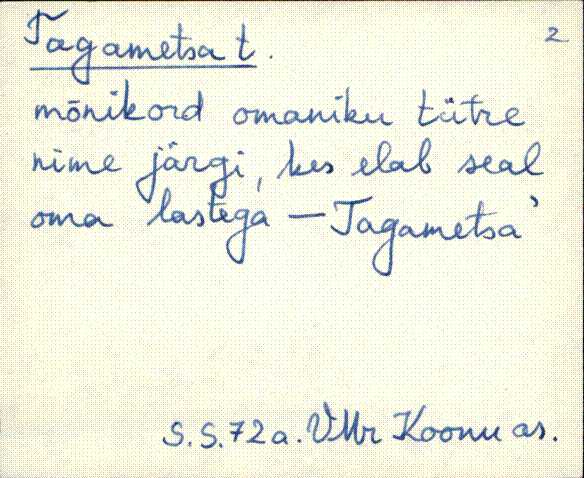 Tagametsa t. 2
mõnikord omaniku tütre
nime järgi, kes elab seal
oma lastega – Tagametsa'
S.S.72a. VMr Koonu as.